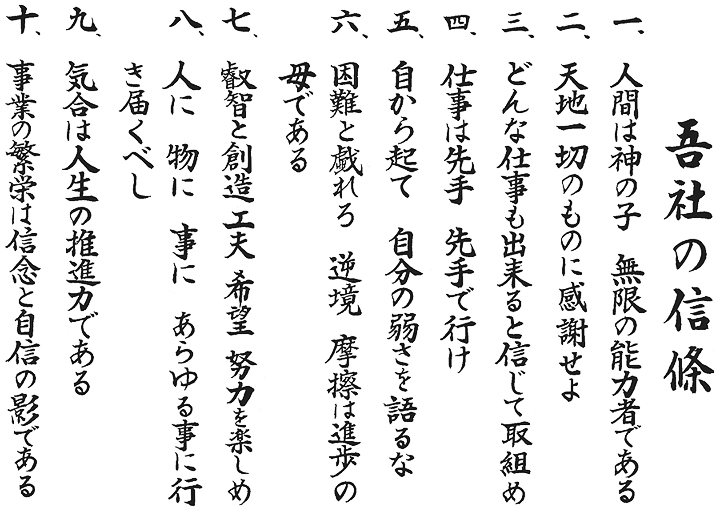 吾社の信條
一、人間は神の子 無限の能力者である
二、天地一切のものに感謝せよ
三、どんな仕事も出来ると信じて取組め
四、仕事は先手 先手で行け
五、自から起て 自分の弱さを語るな
六、困難と戯れろ 逆境 摩擦は進歩の
母である
七、叡智と創造 工夫 希望 努力を楽しめ
八、人に 物に 事に あらゆる事に行
き届くべし
九、気合は人生の推進力である
十、事業の繁栄は信念と自信の影である